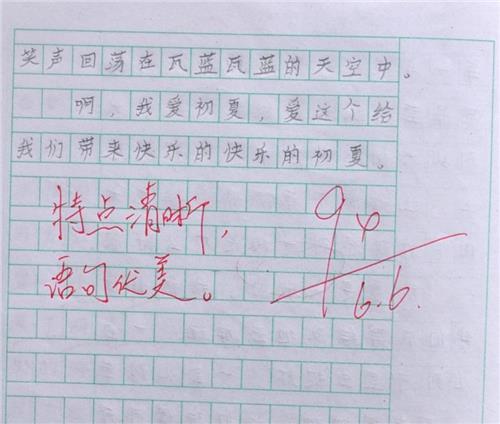 笑声回荡在瓦蓝瓦蓝的天空中。
啊，我爱初夏，爱这个给
我们带来快乐的快乐的初夏。
特点清晰，
语句优美。
94
6.6.